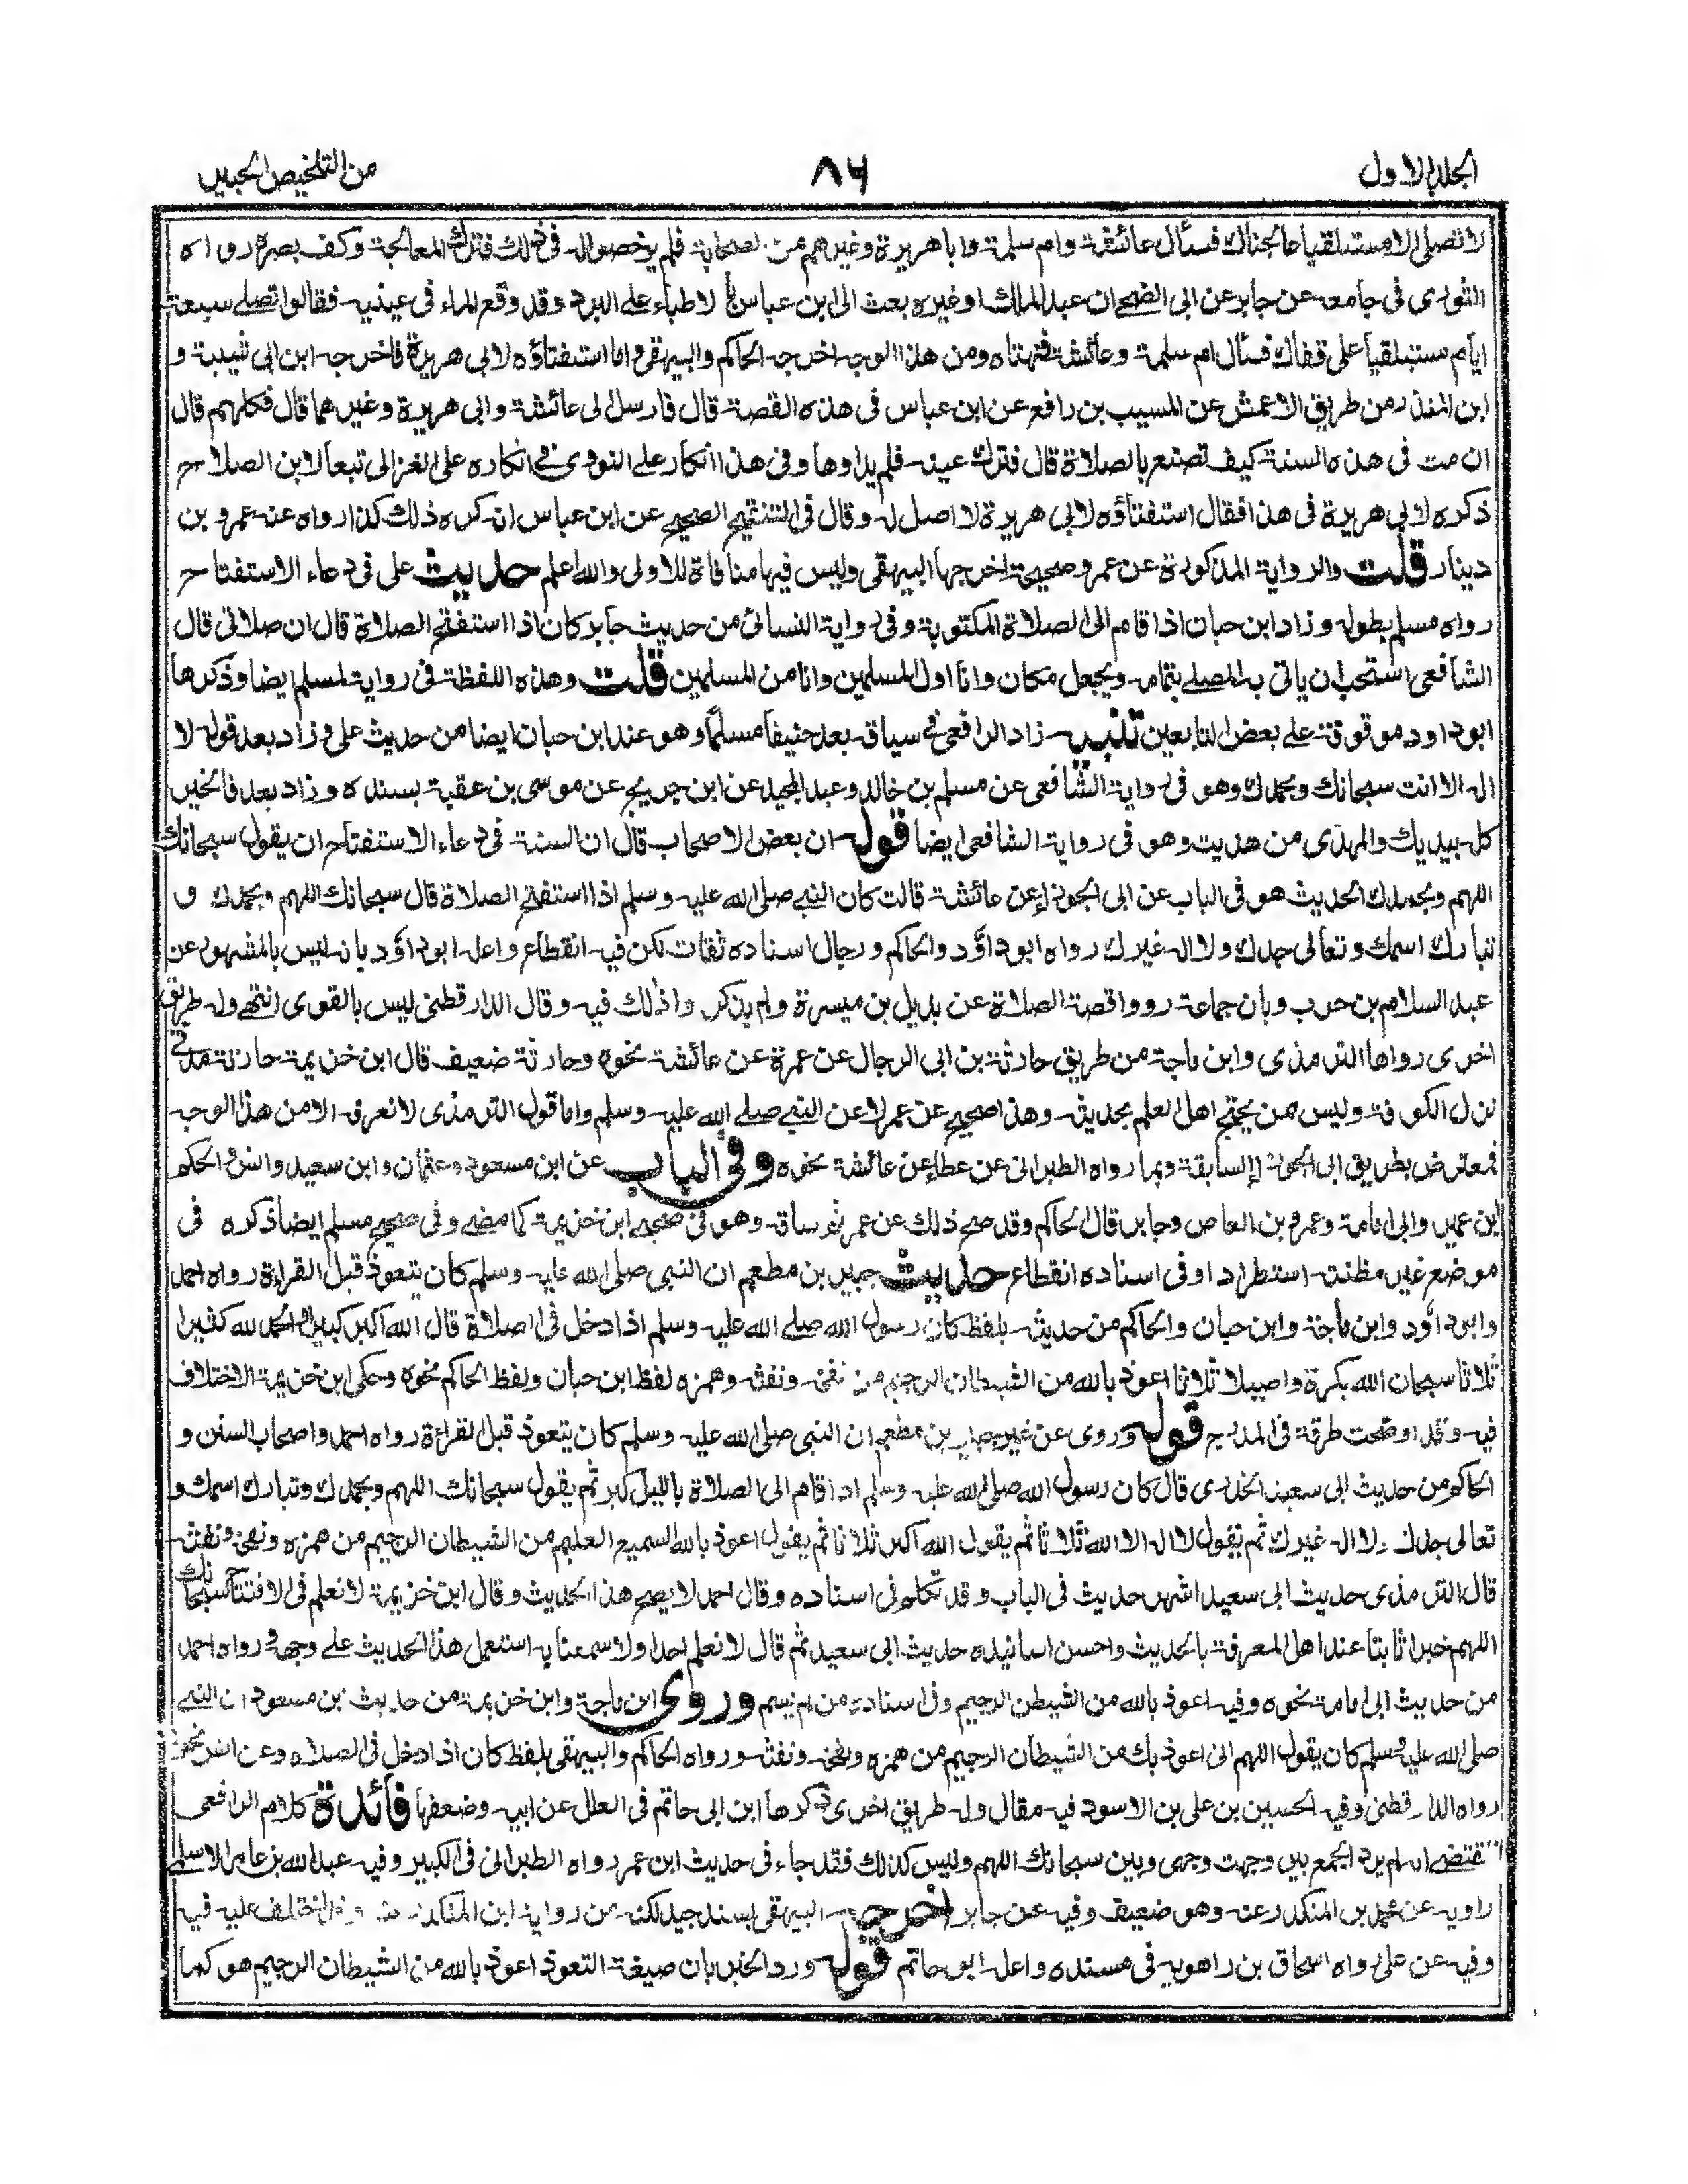 الجلد الاول
٨٦
من التلخيص الحبير
لا تصلى الا مستلقيا عالجناك فسأل عائشة وام سلمة وابا هريرة وغيرهم من الصحابة فلم يرخصوا له في ذلك فترك المعالجة وكف بصره رواه
الثورى فى جامعه عن جابر عن ابى الضحى ان عبد الملك او غيره بعث الى ابن عباس بالاطباء على البرد وقد وقع الماء فى عينيه فقالوا تصلى سبعة
ايام مستلقيا على قفاك فسأل ام سلمة وعائشة فنهتاه ومن هذا الوجه اخرجه الحاكم والبيهقى واما استفتاؤه لابى هريرة فاخرجه ابن ابى شيبة و
ابن المنذر من طريق الاعمش عن المسيب بن رافع عن ابن عباس فى هذه القصة قال فارسل الى عائشة وابى هريرة وغيرهما قال فكلهم قال
ان مت فى هذه السنة كيف تصنع بالصلاة قال فترك عينه فلم يداوها وفى هذا انكار على النووى فى انكاره على الغزالى تبعا لابن الصلاح
ذكره لابى هريرة فى هذا فقال استفتاؤه لابى هريرة لا اصل له وقال فى التنقيح الصحيح عن ابن عباس انه كره ذلك كذا رواه عنه عمرو بن
دينار قلت والرواية المذكورة عن عمرو صحيحة اخرجها البيهقى وليس فيها منافاة للاولى والله اعلم حديث على فى دعاء الاستفتاح
رواه مسلم بطوله وزاد ابن حبان اذا قام الى الصلاة المكتوبة وفى رواية النسائى من حديث جابر كان اذا استفتح الصلاة قال ان صلاتى قال
الشافعى استحب ان ياتى به المصلى بتمامه ويجعل مكان وانا اول المسلمين وانا من المسلمين قلت وهذه اللفظة فى رواية لمسلم ايضا وذكرها
ابو داود موقوفة على بعض التابعين تنبيه زاد الرافعى فى سياقه بعد حنيفا مسلما وهو عند ابن حبان ايضا من حديث على وزاد بعد قوله لا
اله الا انت سبحانك وبحمدك وهو فى رواية الشافعى عن مسلم بن خالد وعبد المجيد عن ابن جريج عن موسى بن عقبة بسنده وزاد بعد فالخير
كله بيديك والمهدى من هديت وهو فى رواية الشافعى ايضا قوله ان بعض الاصحاب قال ان السنة فى دعاء الاستفتاح ان يقول سبحانك
اللهم وبحمدك الحديث هو فى الباب عن ابى الجوزاء عن عائشة قالت كان النبى صلى الله عليه وسلم اذا استفتح الصلاة قال سبحانك اللهم وبحمدك و
تبارك اسمك وتعالى جدك ولا اله غيرك رواه ابو داؤد والحاكم ورجال اسناده ثقات لكن فيه انقطاع واعله ابو داؤد بانه ليس بالمشهور عن
عبد السلام بن حرب وبان جماعة رووا قصة الصلاة عن بديل بن ميسرة ولم يذكروا ذلك فيه وقال الدارقطنى ليس بالقوى انتهى وله طريق
اخرى رواها الترمذى وابن ماجة من طريق حارثة بن ابى الرجال عن عمرة عن عائشة نحوه وحارثة ضعيف قال ابن خزيمة حارثة مدنى
نزل الكوفة وليس ممن يحتج اهل العلم بحديثه وهذا صحيح عن عمر لا عن النبى صلى الله عليه وسلم واما قول الترمذى لا نعرفه الا من هذا الوجه
فمعترض بطريق ابى الجوزاء السابقة وبما رواه الطبرانى عن عطاء عن عائشة نحوه وفى الباب عن ابن مسعود وعثمان وابى سعيد وانس والحكم
ابن عمير وابى امامة وعمرو بن العاص وجابر قال الحاكم وقد صح ذلك عن عمر ثم ساقه وهو فى صحيح ابن خزيمة كما مضى وفى صحيح مسلم ايضا ذكره فى
موضع غير مظنته استطرادا وفى اسناده انقطاع حديث جبير بن مطعم ان النبى صلى الله عليه وسلم كان يتعوذ قبل القراءة رواه احمد
وابو داؤد وابن ماجة وابن حبان والحاكم من حديثه بلفظ كان رسول الله صلى الله عليه وسلم اذا دخل فى الصلاة قال الله اكبر كبيرا والحمد لله كثيرا
ثلاثا سبحان الله بكرة واصيلا ثلاثا اعوذ بالله من الشيطان الرجيم من نفخه ونفثه وهمزه لفظ ابن حبان ولفظ الحاكم نحوه وحكى ابن خزيمة الاختلاف
فيه وقد اوضحت طرقه فى المدرج قوله وروى عن غير جبير بن مطعم ان النبى صلى الله عليه وسلم كان يتعوذ قبل القراءة رواه احمد واصحاب السنن و
الحاكم من حديث ابى سعيد الخدرى قال كان رسول الله صلى الله عليه وسلم اذا قام الى الصلاة بالليل كبر ثم يقول سبحانك اللهم وبحمدك وتبارك اسمك و
تعالى جدك ولا اله غيرك ثم يقول لا اله الا الله ثلاثا ثم يقول الله اكبر ثلاثا ثم يقول اعوذ بالله السميع العليم من الشيطان الرجيم من همزه ونفخه ونفثه
قال الترمذى حديث ابى سعيد اشهر حديث فى الباب وقد تكلم فى اسناده وقال احمد لا يصح هذا الحديث وقال ابن خزيمة لا نعلم فى الافتتاح سبحانك
اللهم خبرا ثابتا عند اهل المعرفة بالحديث واحسن اسانيده حديث ابى سعيد ثم قال لا نعلم احدا ولا سمعنا به استعمل هذا الحديث على وجهه ورواه احمد
من حديث ابى امامة نحوه وفيه اعوذ بالله من الشيطن الرجيم وفى اسناده من لم يسم وروى ابن ماجة وابن خزيمة من حديث ابن مسعود ان النبى
صلى الله عليه وسلم كان يقول اللهم انى اعوذ بك من الشيطان الرجيم من همزه ونفخه ونفثه ورواه الحاكم والبيهقى بلفظ كان اذا دخل فى الصلاة وعن انس نحوه
رواه الدارقطنى وفيه الحسين بن على بن الاسود فيه مقال وله طريق اخرى ذكرها ابن ابى حاتم فى العلل عن ابيه وضعفها فائدة كلام الرافعى
يقتضى انه لم يرد الجمع بين وجهت وجهى وبين سبحانك اللهم وليس كذلك فقد جاء فى حديث ابن عمر رواه الطبرانى فى الكبير وفيه عبد الله بن عامر الاسلمى
راويه عن محمد بن المنكدر عنه وهو ضعيف وفيه عن جابر اخرجه البيهقى بسند جيد لكنه من رواية ابن المنكدر عنه وقد اختلف عليه فيه
وفيه عن على رواه اسحاق بن راهويه فى مسنده واعله ابو حاتم قوله ورد الخبر بان صيغة التعوذ اعوذ بالله من الشيطان الرجيم هو كما